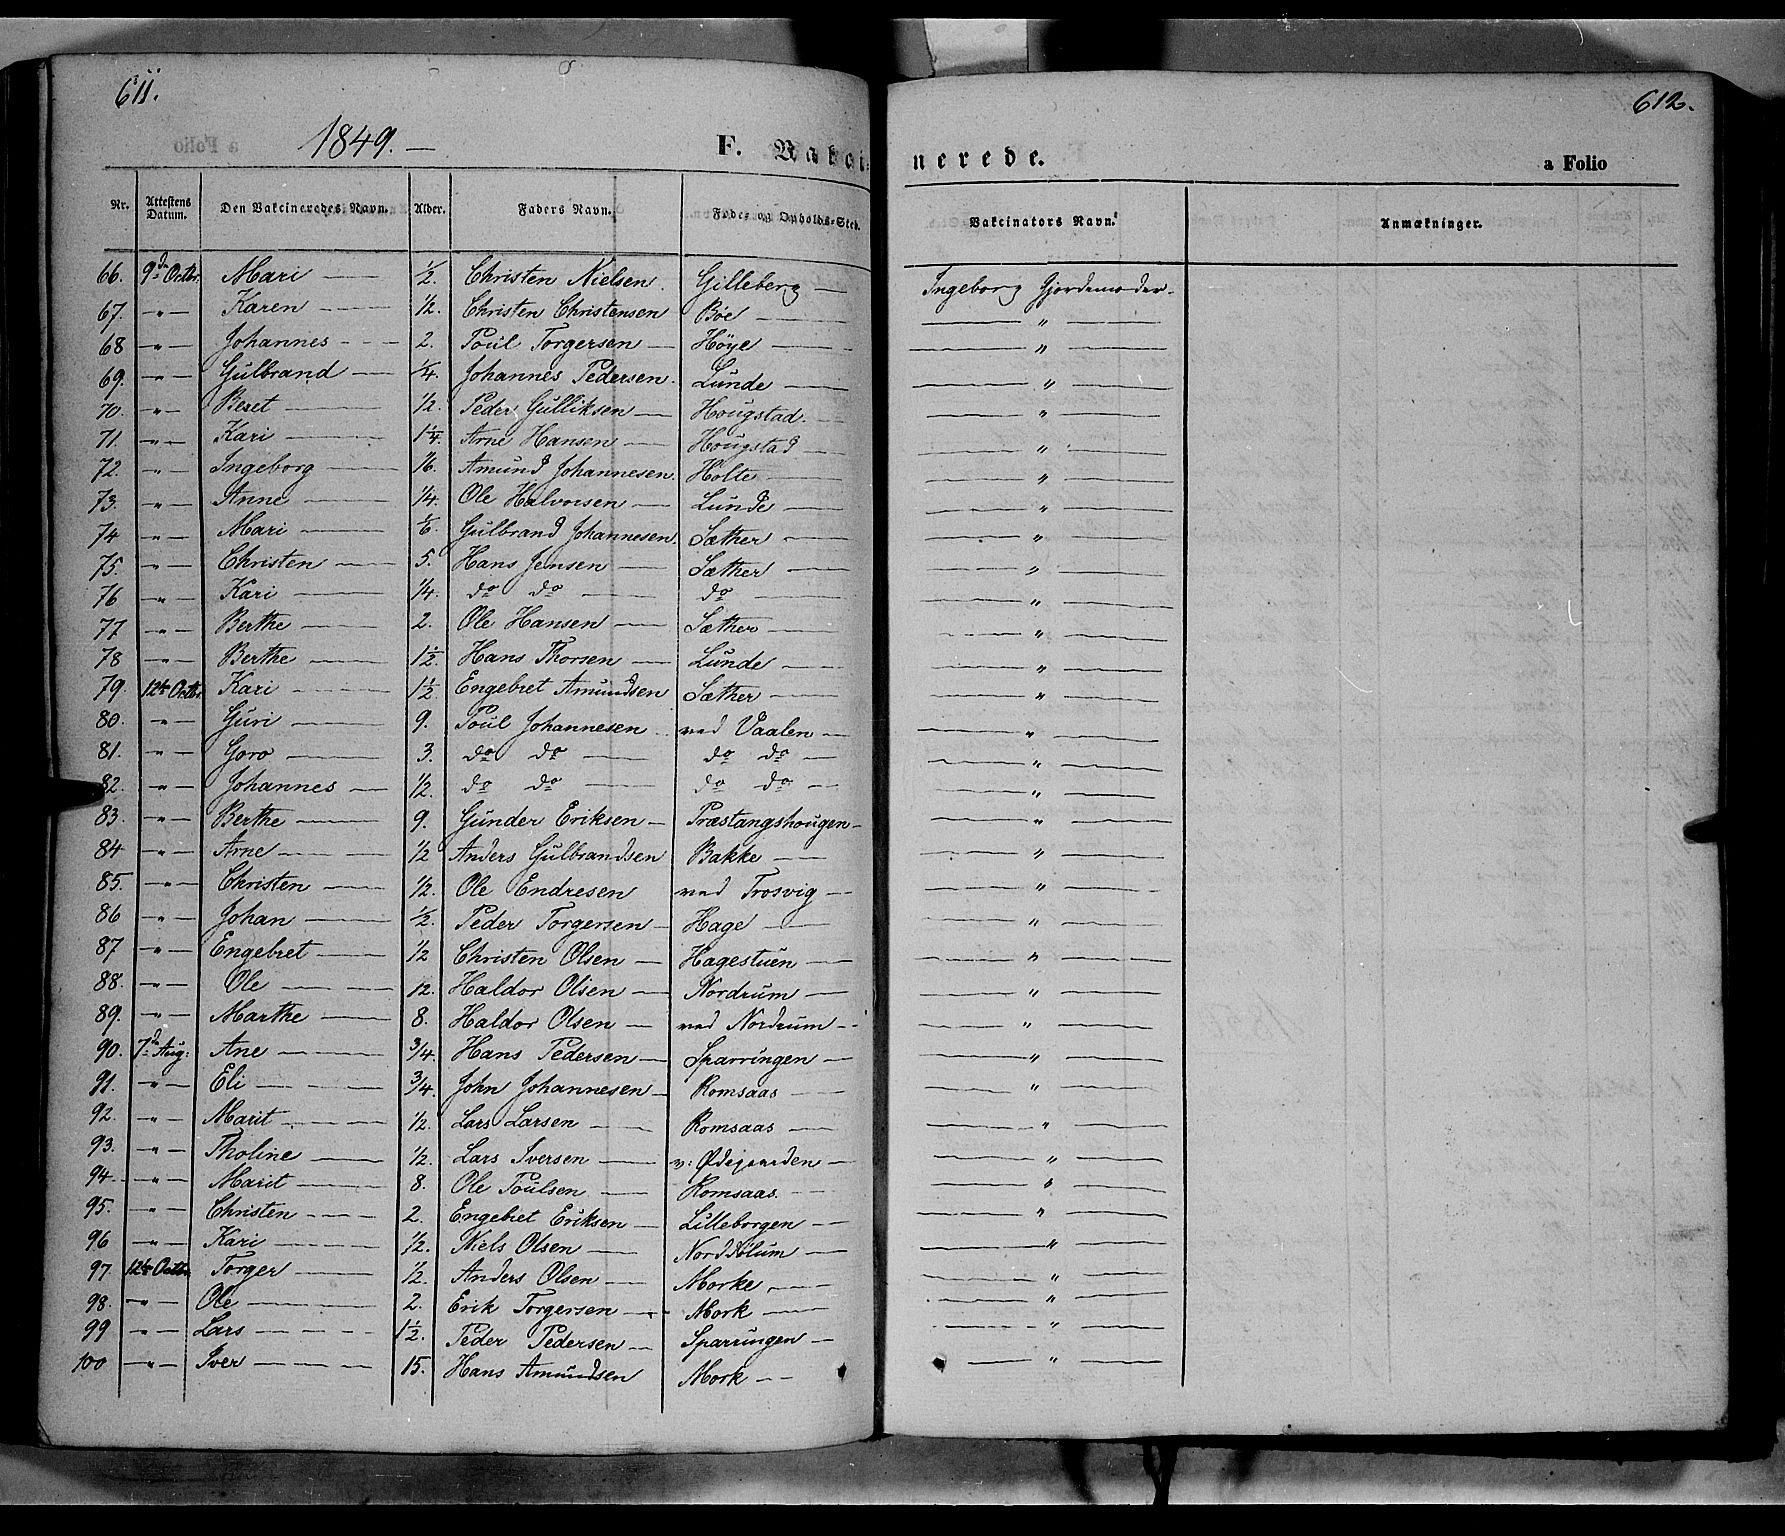 611.
612.
1849. —
F. Vakci-
nerede.
a Folio
Nr. Attestens Datum. Den Vakcineredes Navn. Alder. Faders Navn. Føde- og Opholds-Sted. Vakcinators Navn. Anmærkninger.
66. 9de Octbr. Mari — 1/2. Christen Nielsen. Gilleberg — Ingeborg Gjordemoder.
67. —"— Karen — 1/2. Christen Christensen Bøe — — " —
68 —"— Johannes — 2. Poul Torgersen — Höye — — " —
69. —"— Gulbrand — 1/4. Johannes Pedersen. Lunde — — " —
70. —"— Beret — 1/2. Peder Gulliksen — Hougstad. — — " —
71. —"— Kari — 1 1/4. Arne Hansen — Hougstad — — " —
72. —"— Ingeborg — 1/6. Amund Johannesen. Holte — — " —
73. —"— Anne — 1/4. Ole Halvorsen — Lunde — — " —
74 —"— Mari — 1/6. Gulbrand Johannesen. Sæther — — " —
75. —"— Christen — 5. Hans Jensen — Sæther — — " —
76 —"— Kari — 1/4. do do — do — — " —
77 —"— Berthe — 2. Ole Hansen — Sæther — — " —
78 —"— Berthe — 1 1/2. Hans Thorsen — Lunde — — " —
79. 12te Octbr. Kari — 1 1/2 Engebret Amundsen Sæther — — " —
80. —"— Guri — 9. Poul Johannesen ved Vaalen — — " —
81. —"— Goro — 3. do do — do do — — " —
82. —"— Johannes — 1/2. do do — do do — — " —
83. —"— Berthe — 9. Gunder Eriksen — Præstangshougen — — " —
84 —"— Arne — 1/2 Anders Gulbrandsen Bakke — — " —
85. —"— Christen — 1/2. Ole Endresen ved Trosvig — — " —
86 —"— Johan — 1/2. Peder Torgersen — Hage — — " —
87 —"— Engebret — 1/2 Christen Olsen — Hagestuen — — " —
88. —"— Ole — 12. Haldor Olsen — Nordrum — — " —
89. —"— Marthe — 8. Haldor Olsen — ved Nordrum — — " —
90. 7de Aug: Ane — 3/4. Hans Pedersen — Sparringen — — " —
91. —"— Eli — 3/4. John Johannesen — Romsaas — — " —
92. —"— Marit — 1/2. Lars Larsen — Romsaas — — " —
93. —"— Tholine — 1/2. Lars Iversen — v: Ødegaarden — — " —
94. —"— Marit — 8. Ole Poulsen — Romsaas. — — " —
95. —"— Christen — 2. Engebret Eriksen — Lilleborgen — — " —
96 —"— Kari — 1/2. Niels Olsen — Norddølum — — " —
97. 12te Octbr. Torger — 1/2. Anders Olsen — Morke — — " —
98. —"— Ole — 2. Erik Torgersen — Mork — — " —
99 —"— Lars — 1 1/2. Peder Pedersen — Sparringen — — " —
100 —"— Iver — 15. Hans Amundsen Mork — — " —